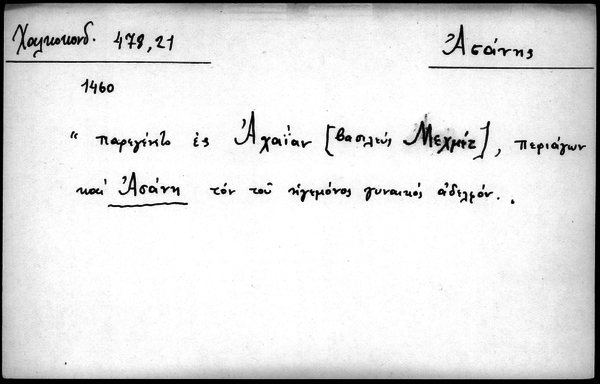 Χαλκοκονδ. 478,21
Ἀσάνης
1460
“ παρεγένετο ἐς Ἀχαΐαν [βασιλεύς Μεχμέτ], περιάγων
καί Ἀσάνη τόν τοῦ ἡγεμόνος γυναικός ἀδελφόν. .